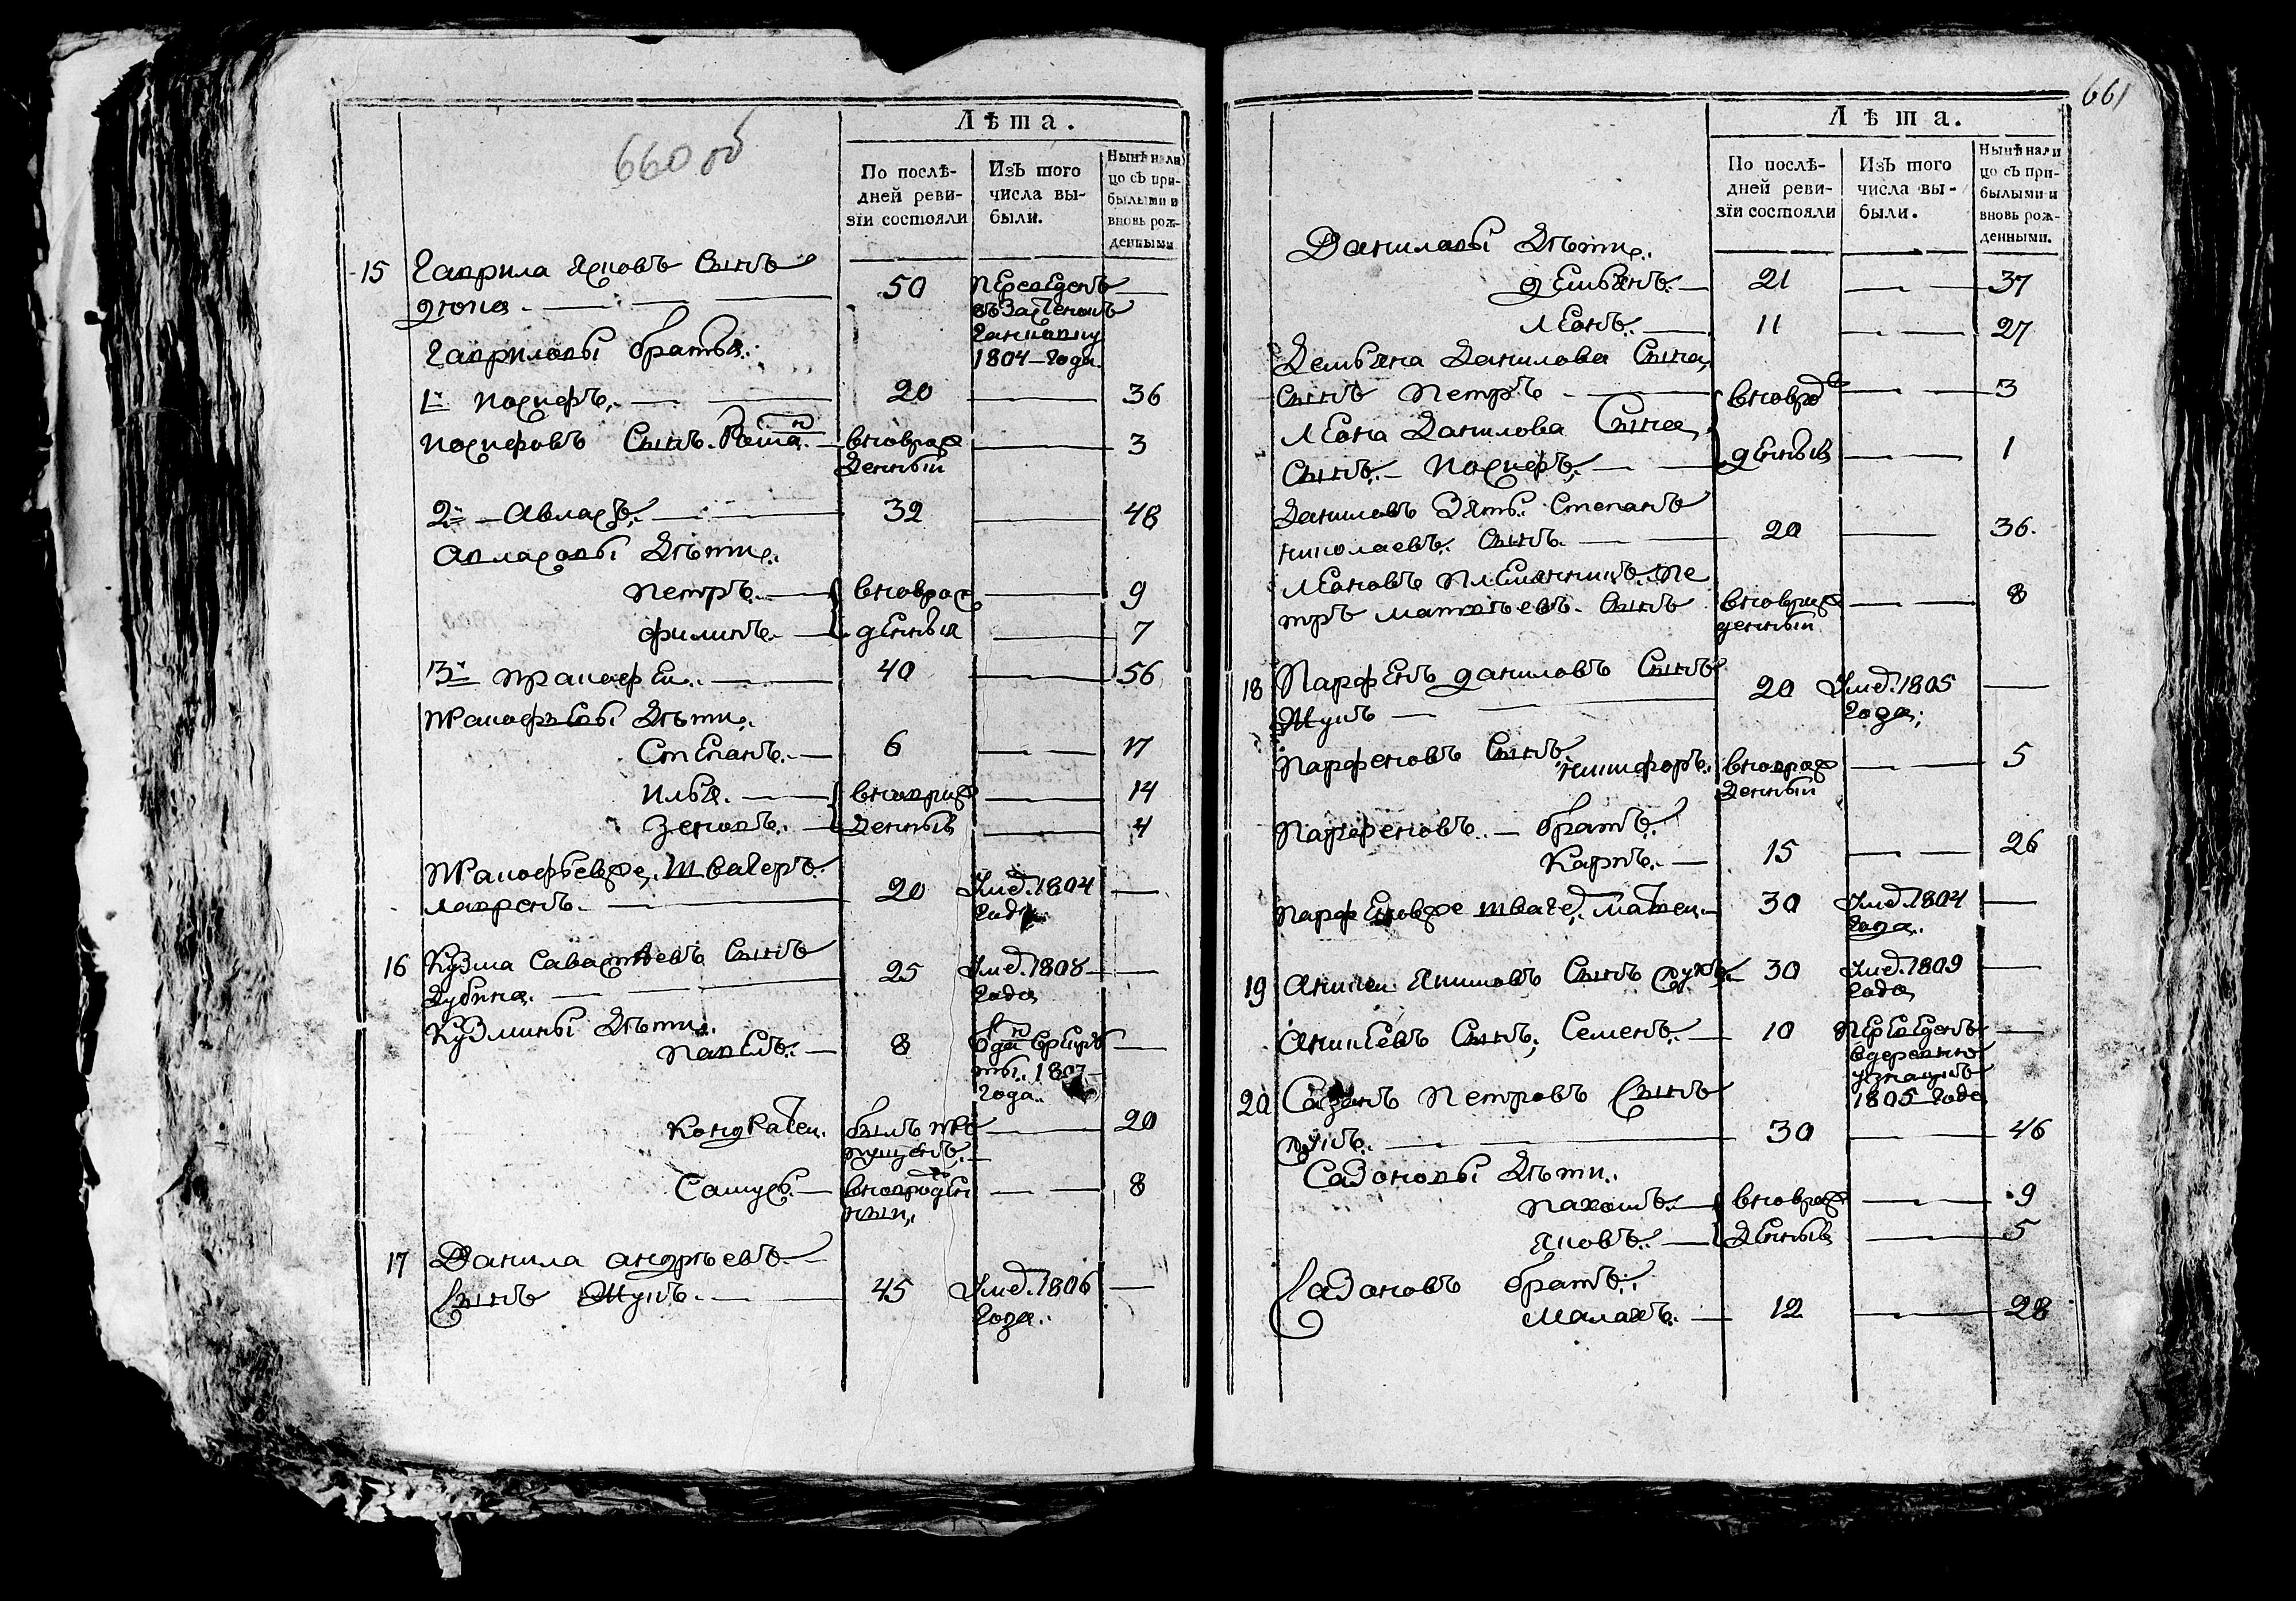 660 об
Лѣта.
По послѣ-
дней реви-
зіи состояли
Изъ того
числа вы-
были.
Нынѣ нали
цо съ при-
былыми и
вновь рож-
денными
15 Гаврила Яковъ Сынъ
дюпа
50
переведенъ
1804 года
Гавриловы братья
1й иосифъ 20 36
иосифовъ Сынъ Романъ вноврож 3
денный
2й Авласъ 32 48
Авласовы Дѣти
петръ вноврож 9
филипъ денныя 7
3й пракофеи 40 56
пракофьевы Дѣти
Степанъ 6 17
Илья вновриж 14
Зеновъ денныя 4
пракофьевже швагеръ
лавренъ 20 Умер. 1804
года
16 Кузма Савастѣевъ Сынъ
Дубина 25 Умер. 1808
года
Кузмины Дѣти
павелъ 8 Одан врекру
ты 1807
года
Кондратеи былъ про 20
пущенъ
Самусь вновродѣн 8
ныи
17 Данила андрѣевъ
Сынъ Жукъ 45 Умер. 1806
года
661
Лѣта.
По послѣ-
дней реви-
зіи состояли
Изъ того
числа вы-
были.
Нынѣ нали
цо съ при-
былыми и
вновь рож-
денными.
Даниловы Дѣти
демьянъ 21 37
Леонъ 11 27
Демьяна Данилова Сына
Сынъ петръ вноврож 3
Леона Данилова Сына
Сынъ иосифъ денныя 1
Даниловъ Зять Степанъ
николаевъ Сынъ 20 36
Леоновъ племянникъ пе
тръ матвѣевъ Сынъ вновриж 8
денный
18 Парфенъ даниловъ Сынъ
Жукъ 20 Умер. 1805
года
парфеновъ Сынъ
никифоръ вноврож 5
денный
парфеновъ братъ
Карпъ 15 26
парфеновже шваге матвеи 30 Умер. 1804
года
19 Аникеи Якимовъ Сынъ 30 Умер. 1809
года
Аникеевъ Сынъ Семенъ 10 переведенъ
вдеревню
1805 года
20 Сазонъ петровъ Сынъ
30 46
Сазоновы Дѣти
пахомъ вноврож 9
яковъ денныя 5
Сазоновъ братъ
Малахъ 12 28